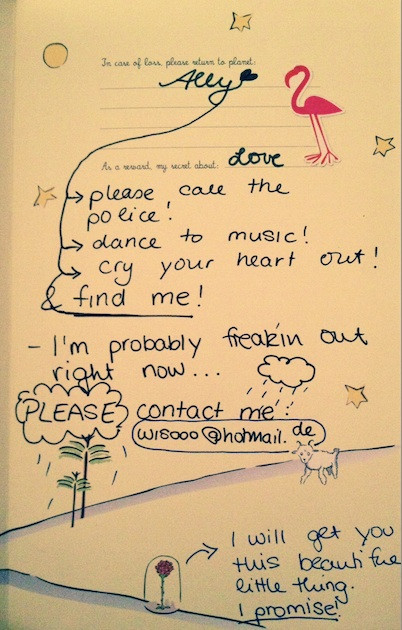 In case of loss, please return to planet:
Ally
As a reward, my secret about: Love
→ please call the
police!
→ dance to music!
→ cry your heart out!
& find me!
- I'm probably freakin out
right now...
PLEASE contact me:
wisooo@hotmail.de
I will get you
this beautiful
little thing.
I promise!